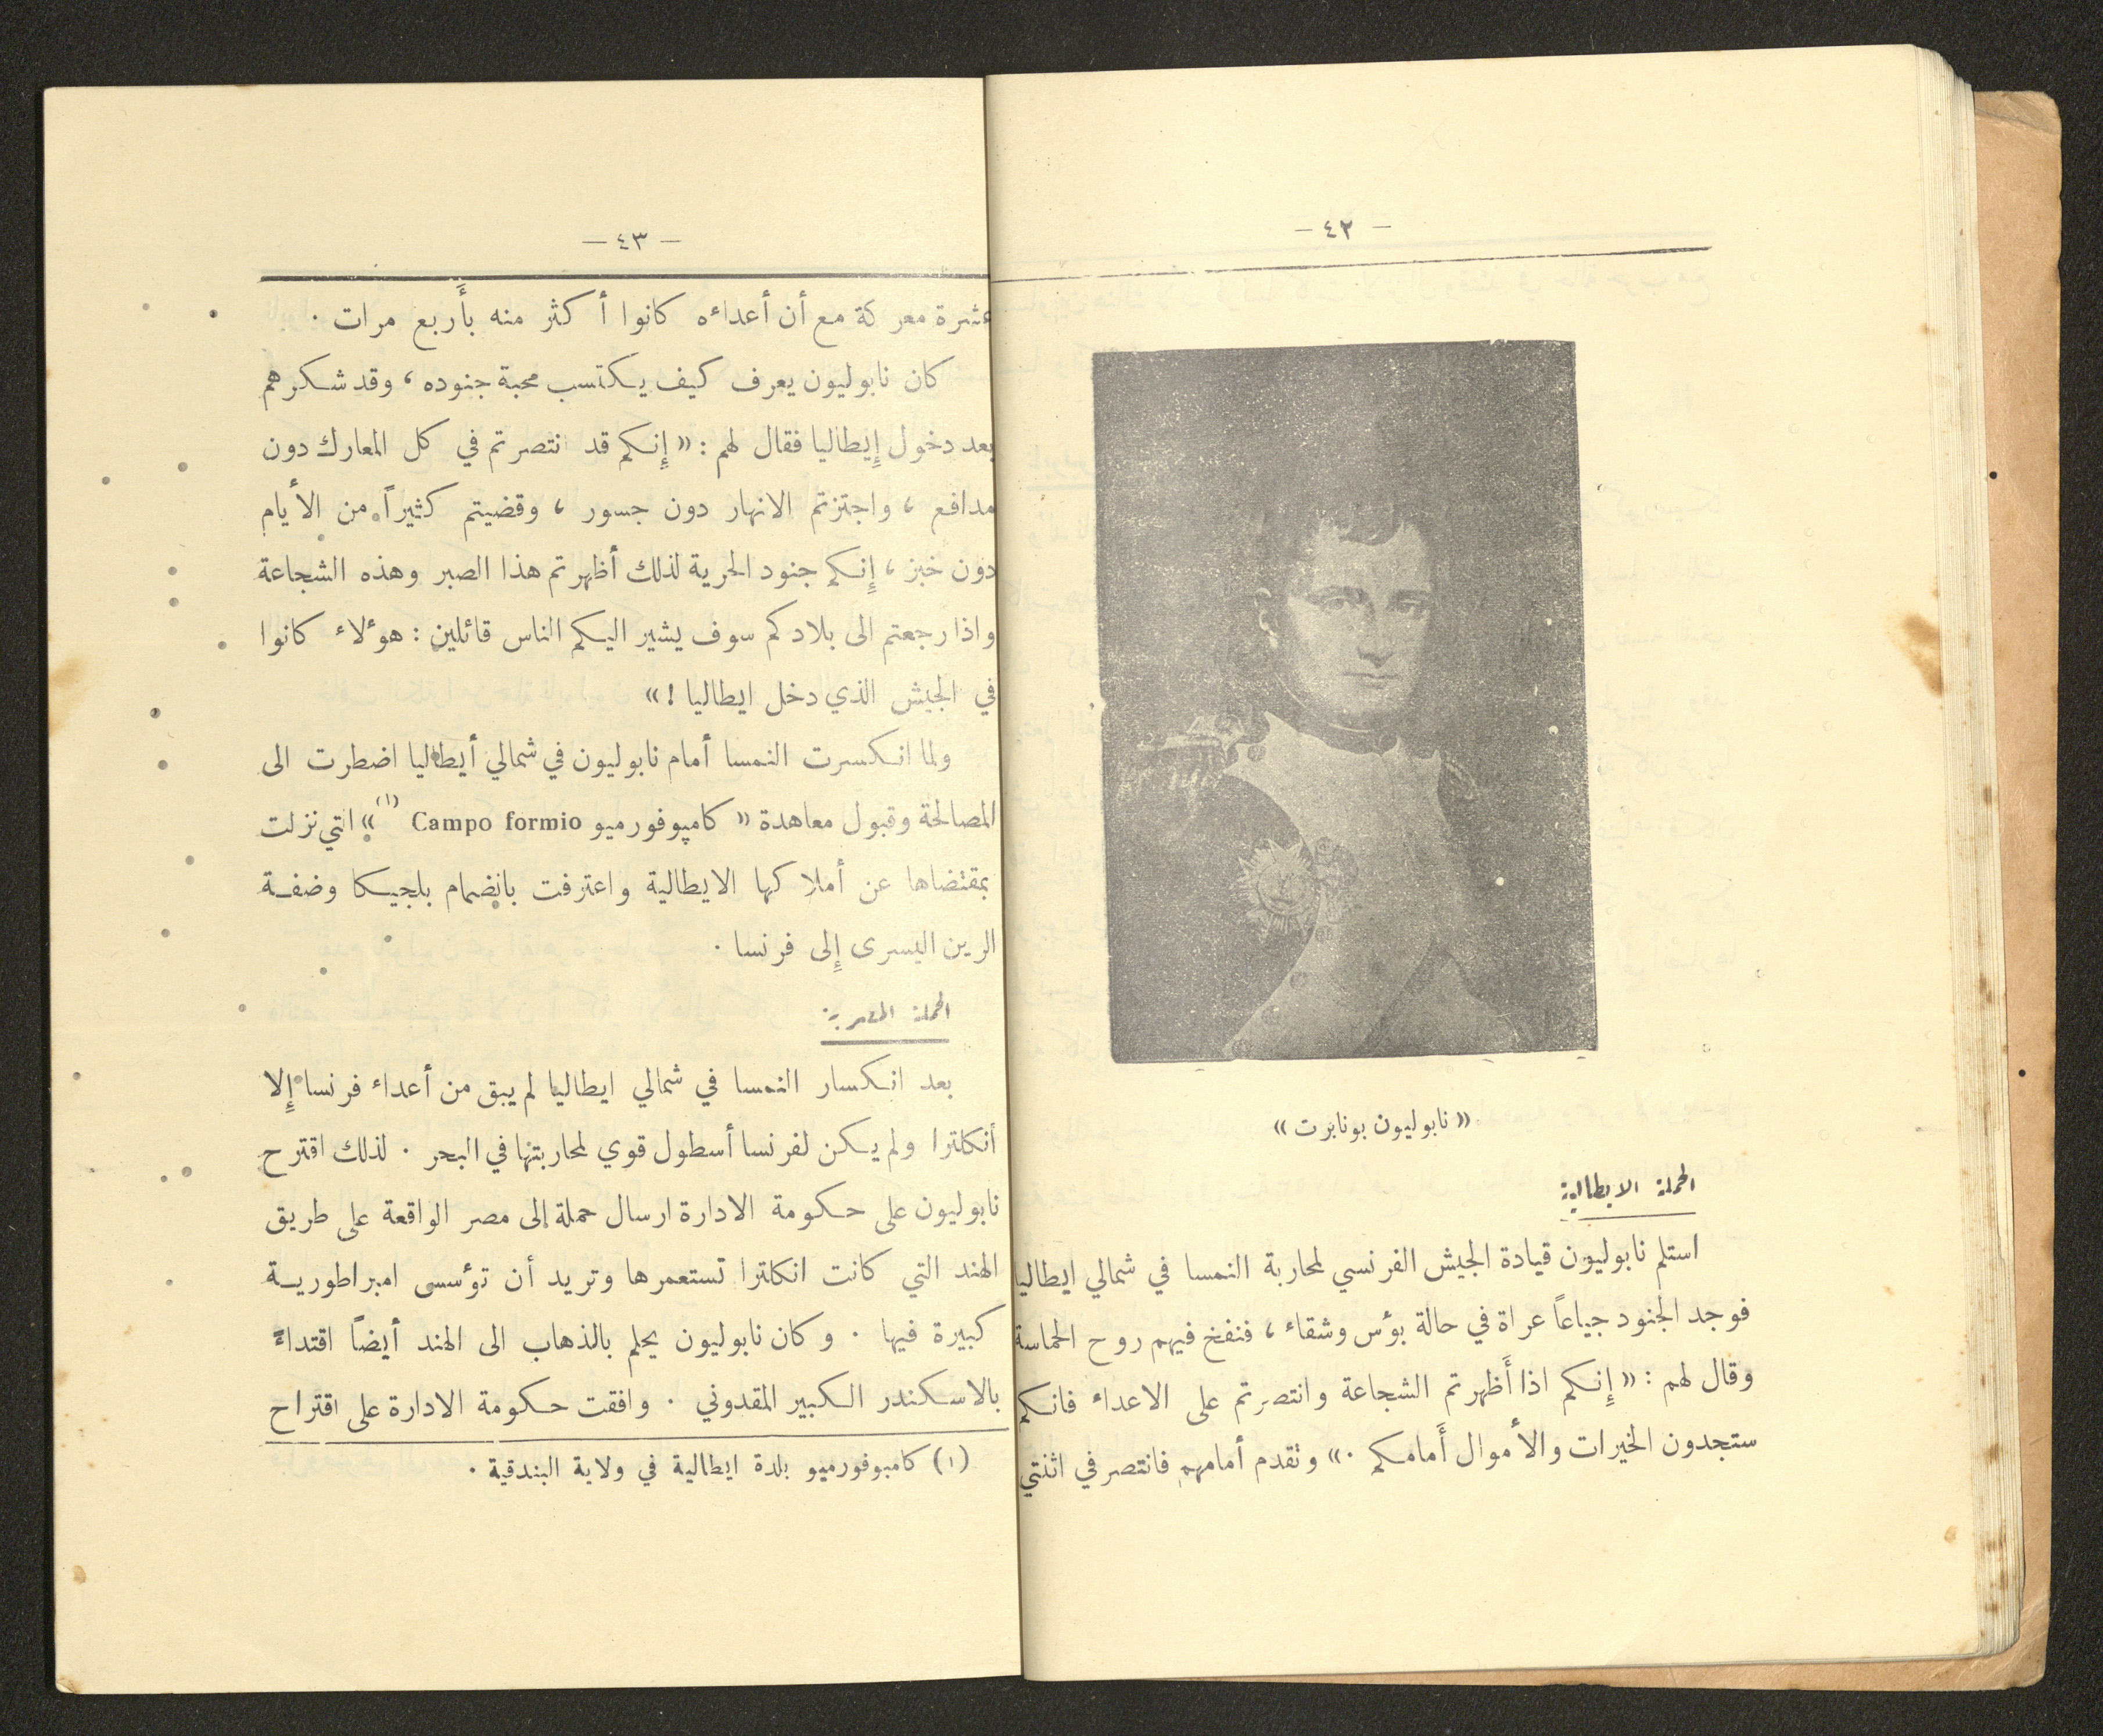 — ٤٢ —
« نابوليون بونابرت »
الحملة الايطالية
استلم نابوليون قيادة الجيش الفرنسي لمحاربة النمسا في شمالي ايطاليا
فوجد الجنود جياعاً عراة في حالة بؤس وشقاء ، فنفخ فيهم روح الحماسة
وقال لهم : « إِنكم اذا أَظهرتم الشجاعة وانتصرتم على الاعداء فانكم
ستجدون الخيرات والأموال أَمامكم . » وتقدم أمامهم فانتصر في اثنتي
— ٤٣ —
عشرة معركة مع أن أعداءه كانوا أكثر منه بأَربع مرات .
كان نابوليون يعرف كيف يكتسب محبة جنوده ، وقد شكرهم
بعد دخول إِيطاليا فقال لهم : « إِنكم قد انتصرتم في كل المعارك دون
مدافع ، واجتزتم الانهار دون جسور ، وقضيتم كثيراً من الأيام
دون خبز ، إِنكم جنود الحرية لذلك أظهرتم هذا الصبر وهذه الشجاعة
واذا رجعتم الى بلادكم سوف يشير اليكم الناس قائلين : هوءلاء كانوا
في الجيش الذي دخل ايطاليا ! »
ولما انكسرت النمسا أمام نابوليون في شمالي أيطاليا اضطرت الى
المصالحة وقبول معاهدة « كامپوفورميو Campo formio (١) » التي نزلت
بمقتضاها عن أملاكها الايطالية واعترفت بانضمام بلجيكا وضفة
الرين اليسرى إِلى فرنسا .
الحملة المصرية
بعد انكسار النمسا في شمالي ايطاليا لم يبق من أعداء فرنسا إِلا
أنكلترا ولم يكن لفرنسا أسطول قوي لمحاربتها في البحر . لذلك اقترح
نابوليون على حكومة الادارة ارسال حملة إلى مصر الواقعة على طريق
الهند التي كانت انكلترا تستعمرها وتريد أن توءسس امبراطورية
كبيرة فيها . وكان نابوليون يحلم بالذهاب الى الهند أيضاً اقتداءً
بالاسكندر الكبير المقدوني . وافقت حكومة الادارة على اقتراح
(١) كامبوفورميو بلدة ايطالية في ولاية البندقية .